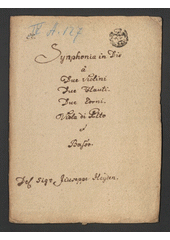 IV A.127
Symphonia in Dis
à
Due Violini
Due Flauti.
Due Corni.
Viola di Alto
e
Basso.
Del Sigre Giuseppe Hayden.